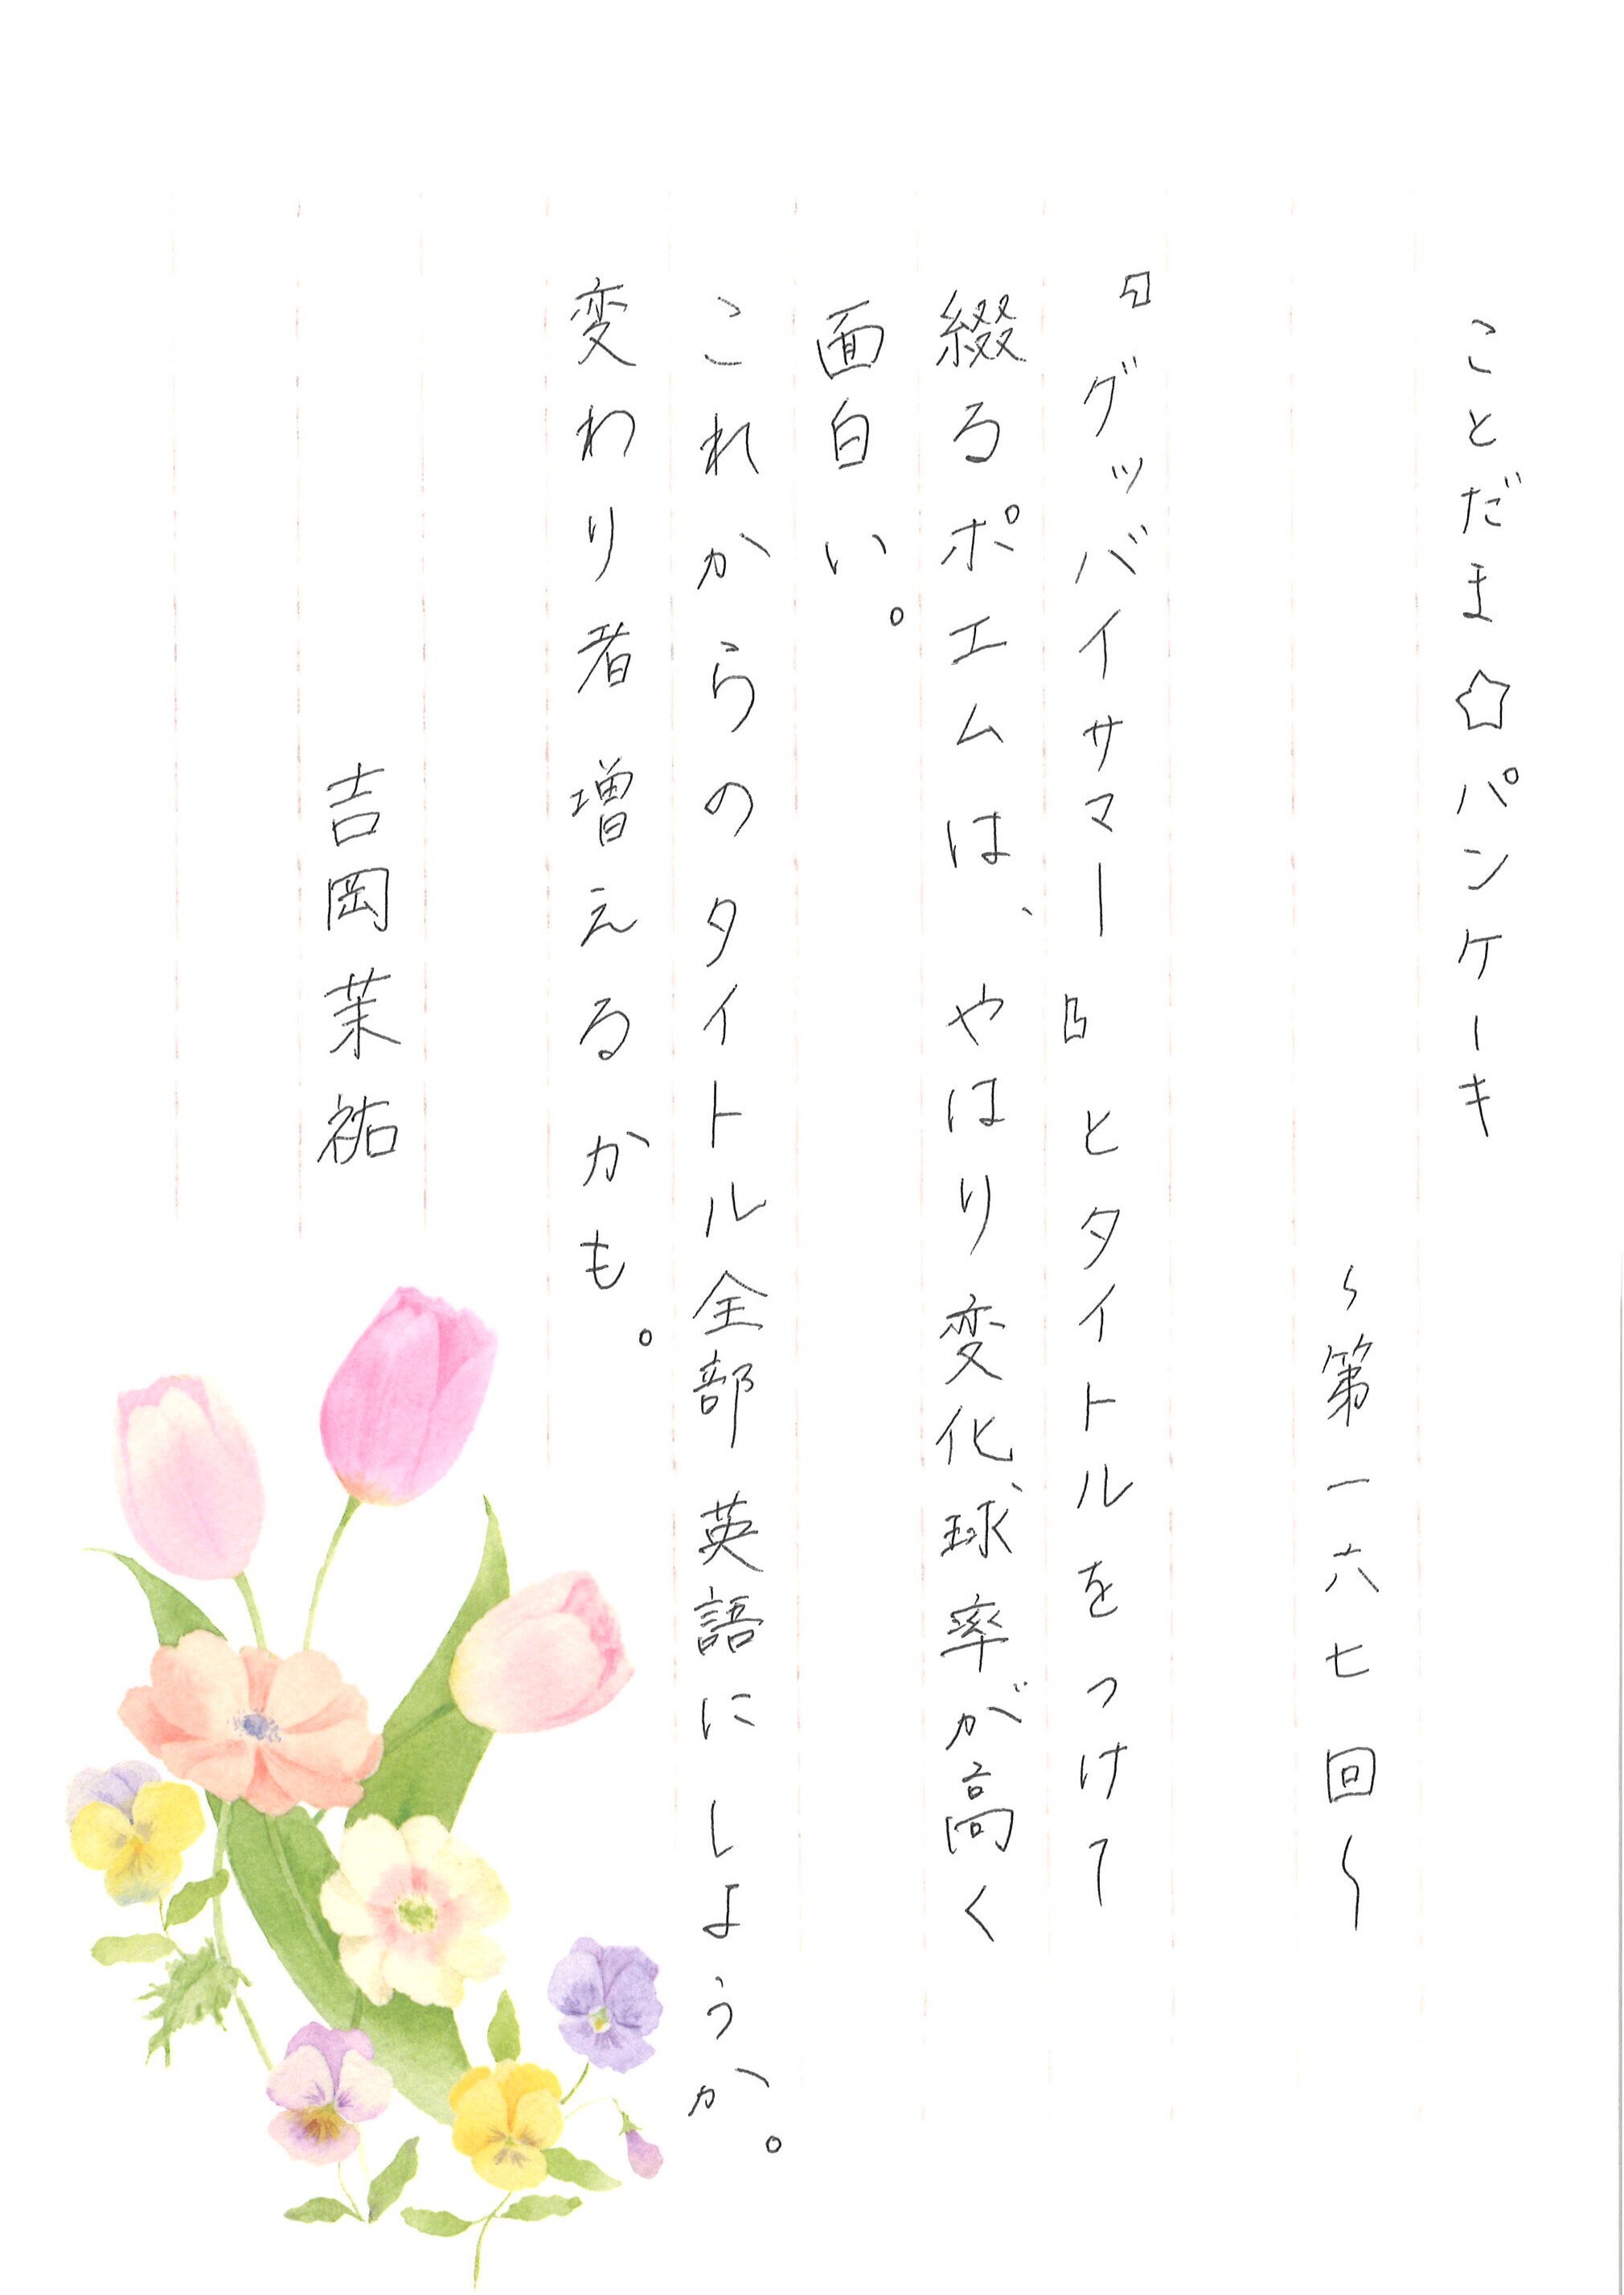 ことだま☆パンケーキ
～第一六七回～
『グッバイサマー』とタイトルをつけて
綴るポエムは、やはり変化球率が高く
面白い。
これからのタイトル全部英語にしようか。
変わり者増えるかも。
吉岡茉祐